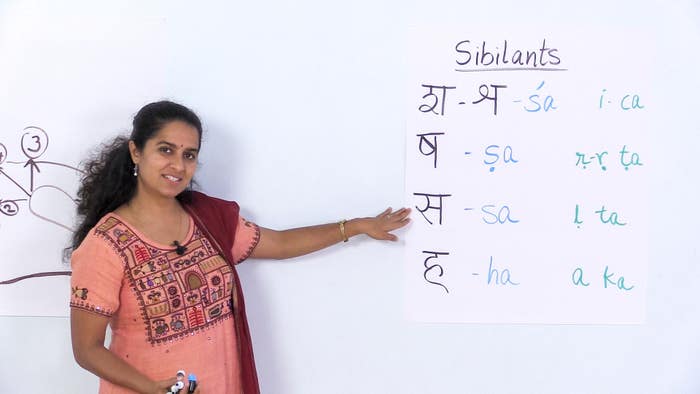 ③
②
Sibilants
श - श्र - śa i · ca
ष - ṣa ṛ - ṝ ṭa
स - sa ḷ ta
ह - ha a ka